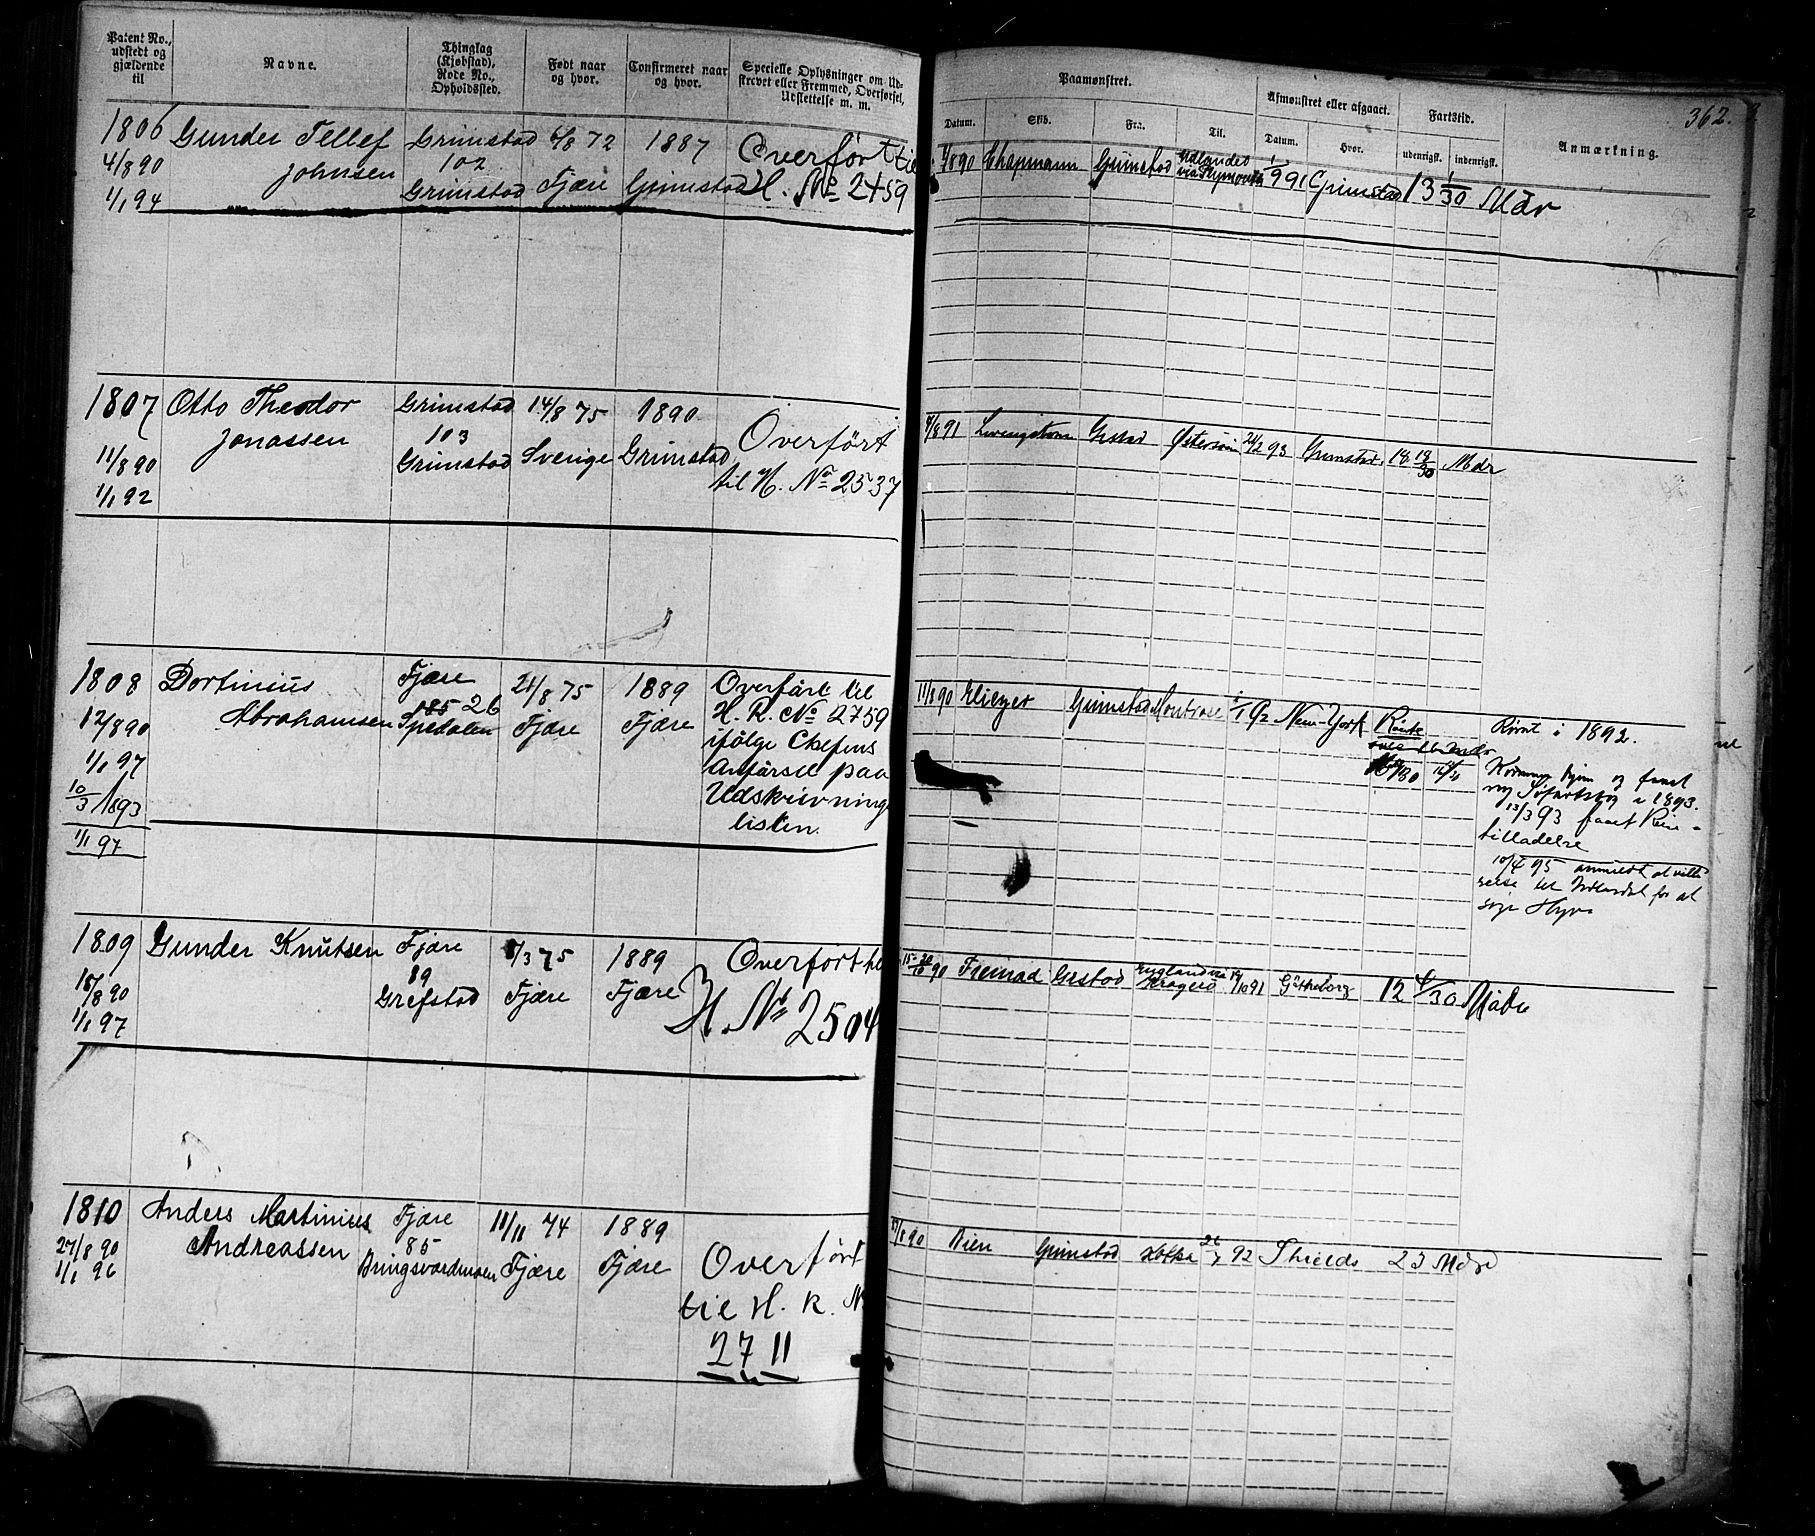 Patent No., udstedt og gjældende til
Navne.
Thinglag (Kjøbstad), Rode No., Opholdssted.
Født naar og hvor.
Confirmeret naar og hvor.
Specielle Oplysninger om Udskrevet eller Fremmed, Overførsel, Udslettelse m. m.
Paamønstret.
Datum.
Skib.
Fra.
Til.
Afmønstret eller afgaaet.
Datum.
Hvor.
Fartstid.
udenrigsk.
indenrigsk.
Anmærkning.
362.
1806 Gunder Tellef Grimstad 6/8 72 1887 Overført til
4/8 90 Johnsen 102
1/1 94 Grimstad Fjære Grimstad H. No 2459
4/8 90 Chapmann Grimstad Udlandet via Plymouth 1/9 91 Grimstad 13 1/30 Mdr
1807 Otto Theodor Grimstad 14/8 75 1890
Jonassen 103 Overført
11/8 90 Grimstad Sverige Grimstad til H. No 2537
1/1 92
Grstad Østersøen 24/2 93 Grimstad 18 19/30 Mdr
1808 Dortinius Fjære 21/8 75 1889 Overført til
Abrahamsen 85 26 H. R. No 2759
12/8 90 Spedalen Fjære Fjære ifølge Chefens
1/1 97 Anførsel paa
10/3 1893 Udskrivnings
1/1 97 listen.
11/8 90 Eliezer Grimstad Montrose 1/1 92 New-York Rømt
Rømt i 1892.
Kommen hjem og faaet
ny Søfartsbog i 1893.
13/3 93 faaet Reise-
tilladelse
10/4 95 anmeldt at ville
reise til Udlandet for at
søge Hyre
1809 Gunder Knutsen Fjære 1/3 75 1889 Overført til
89
15/8 90 Grefstad Fjære Fjære H. No 2504
1/1 97
90 Fremad Grstad England via Kragerø 19/10 91 Gøtheborg 12 4/30 Mdr
1810 Anders Martinius Fjære 11/11 74 1889
Andreassen 85
27/8 90 Bringsværdmoen Fjære Fjære Overført
1/1 96 til H. R. N
2711
27/8 90 Bien Grimstad 26/7 92 Shields 23 Mdr